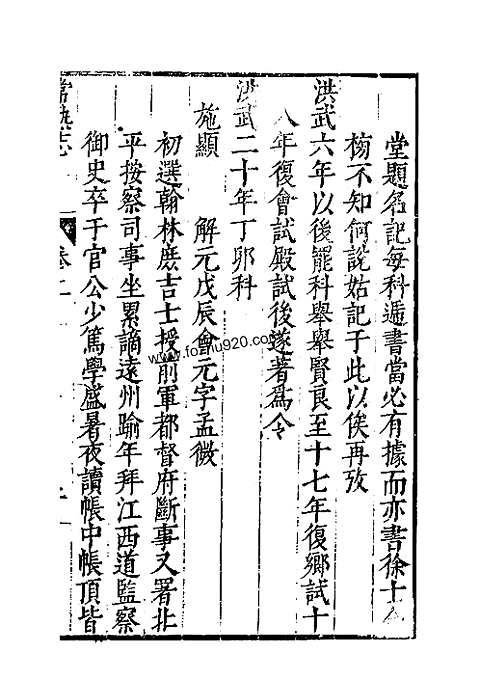 堂題名記每科遞書當必有據而亦書徐十
㮄不知何說姑記于此以俟再攷
洪武六年以後罷科舉舉賢良至十七年復鄉試十
八年復會試殿試後遂著爲令
洪武二十年丁卯科
施顯 解元戊辰會元字孟微
初選翰林庶吉士授前軍都督府斷事又署北
平按察司事坐累謫遠州踰年拜江西道監察
御史卒于官公少篤學盛暑夜讀帳中帳頂皆
志 卷二
www.foshu920.com